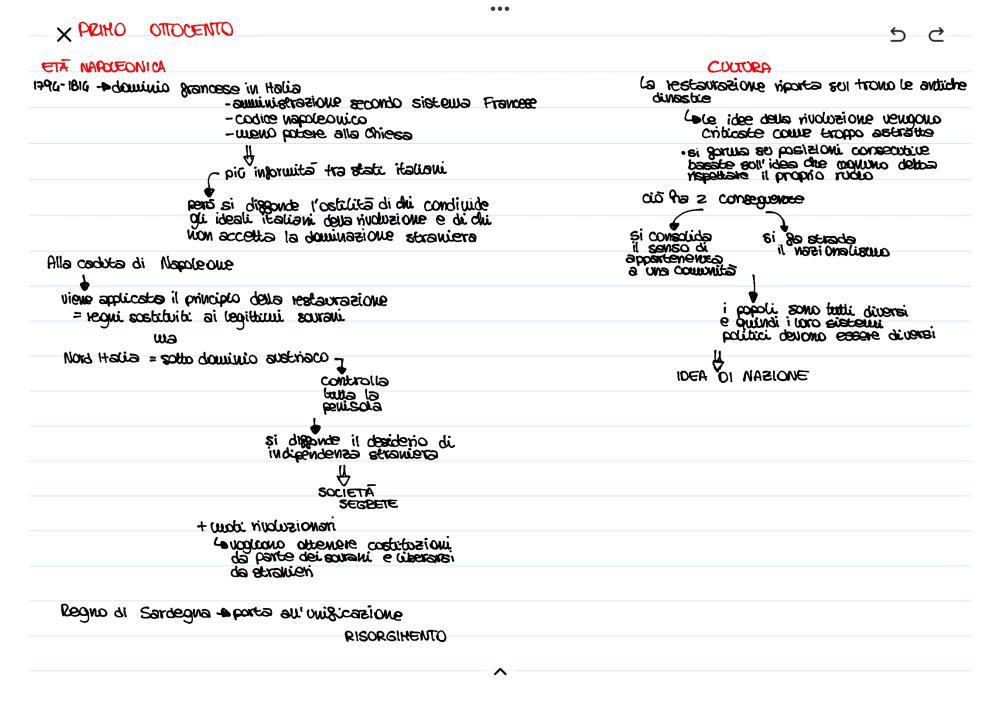 PRIMO OTTOCENTO
ETÀ NAPOLEONICA
1796-1814 → dominio francese in Italia
- amministrazione secondo sistema Francese
- codice napoleonico
- meno potere alla Chiesa
più informità tra stati italiani
però si diffonde l'ostilità di chi condivide
gli ideali italiani della rivoluzione e di chi
non accetta la dominazione straniera
Alla caduta di Napoleone
viene applicato il principio della restaurazione
= regni sostituiti ai legittimi sovrani
ma
Nord Italia = sotto dominio austriaco
controlla
tutta la
penisola
si diffonde il desiderio di
indipendenza straniera
SOCIETÀ
SEGRETE
+ moti rivoluzionari
vogliono ottenere costituzioni
da parte dei sovrani e liberarsi
da stranieri
Regno di Sardegna → porta all'unificazione
RISORGIMENTO
CULTURA
La restaurazione riporta sul trono le antiche
dinastie
le idee della rivoluzione vengono
criticate come troppo astratte
• si forma su posizioni consecutive
basate sull'idea che ognuno debba
rispettare il proprio ruolo
ciò ha 2 conseguenze
si consolida
il senso di
appartenenza
a una comunità
si fa strada
il nazionalismo
i popoli sono tutti diversi
e quindi i loro sistemi
politici devono essere diversi
IDEA DI NAZIONE